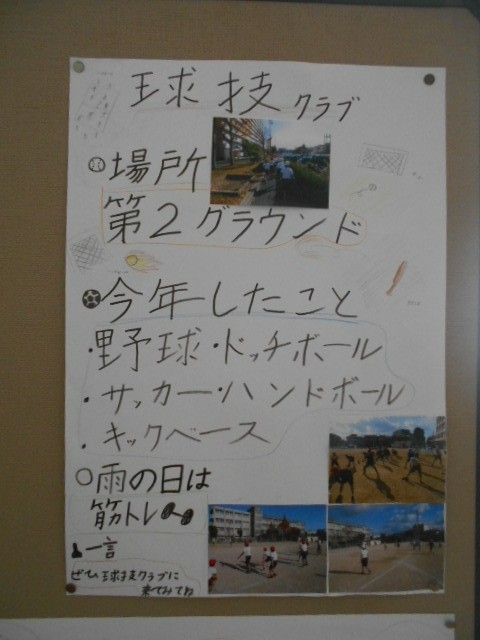 球技クラブ
場所
第2グラウンド
今年したこと
・野球・ドッチボール
・サッカー・ハンドボール
・キックベース
雨の日は
筋トレ
一言
ぜひ球技クラブに
来てみてね